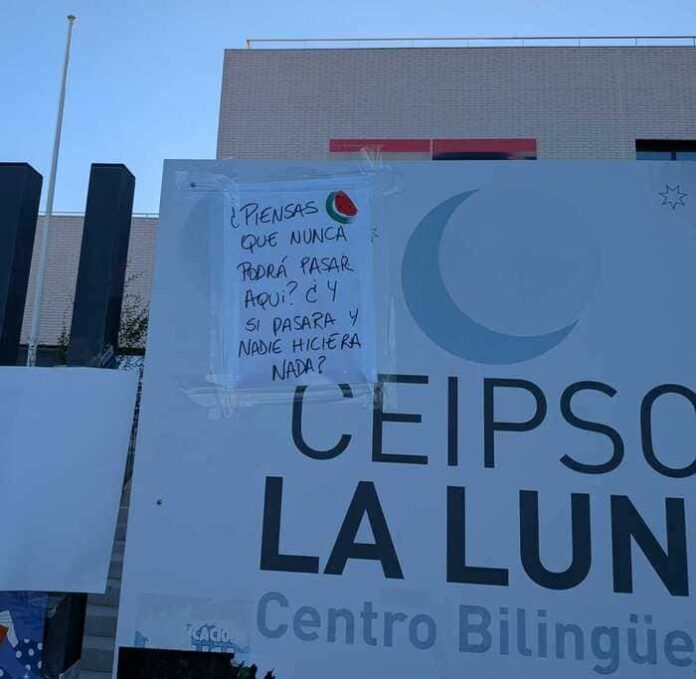 ¿PIENSAS
QUE NUNCA
PODRÁ PASAR
AQUí? ¿Y
SI PASARA Y
NADIE HICIERA
NADA?
CEIPSO
LA LUN
Centro Bilingüe